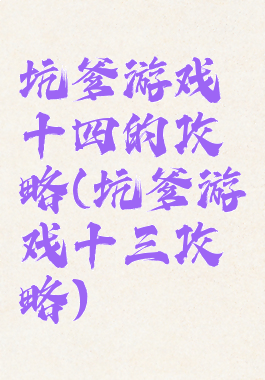 坑爹游戏
十四的攻
略(坑爹游
戏十三攻
略)